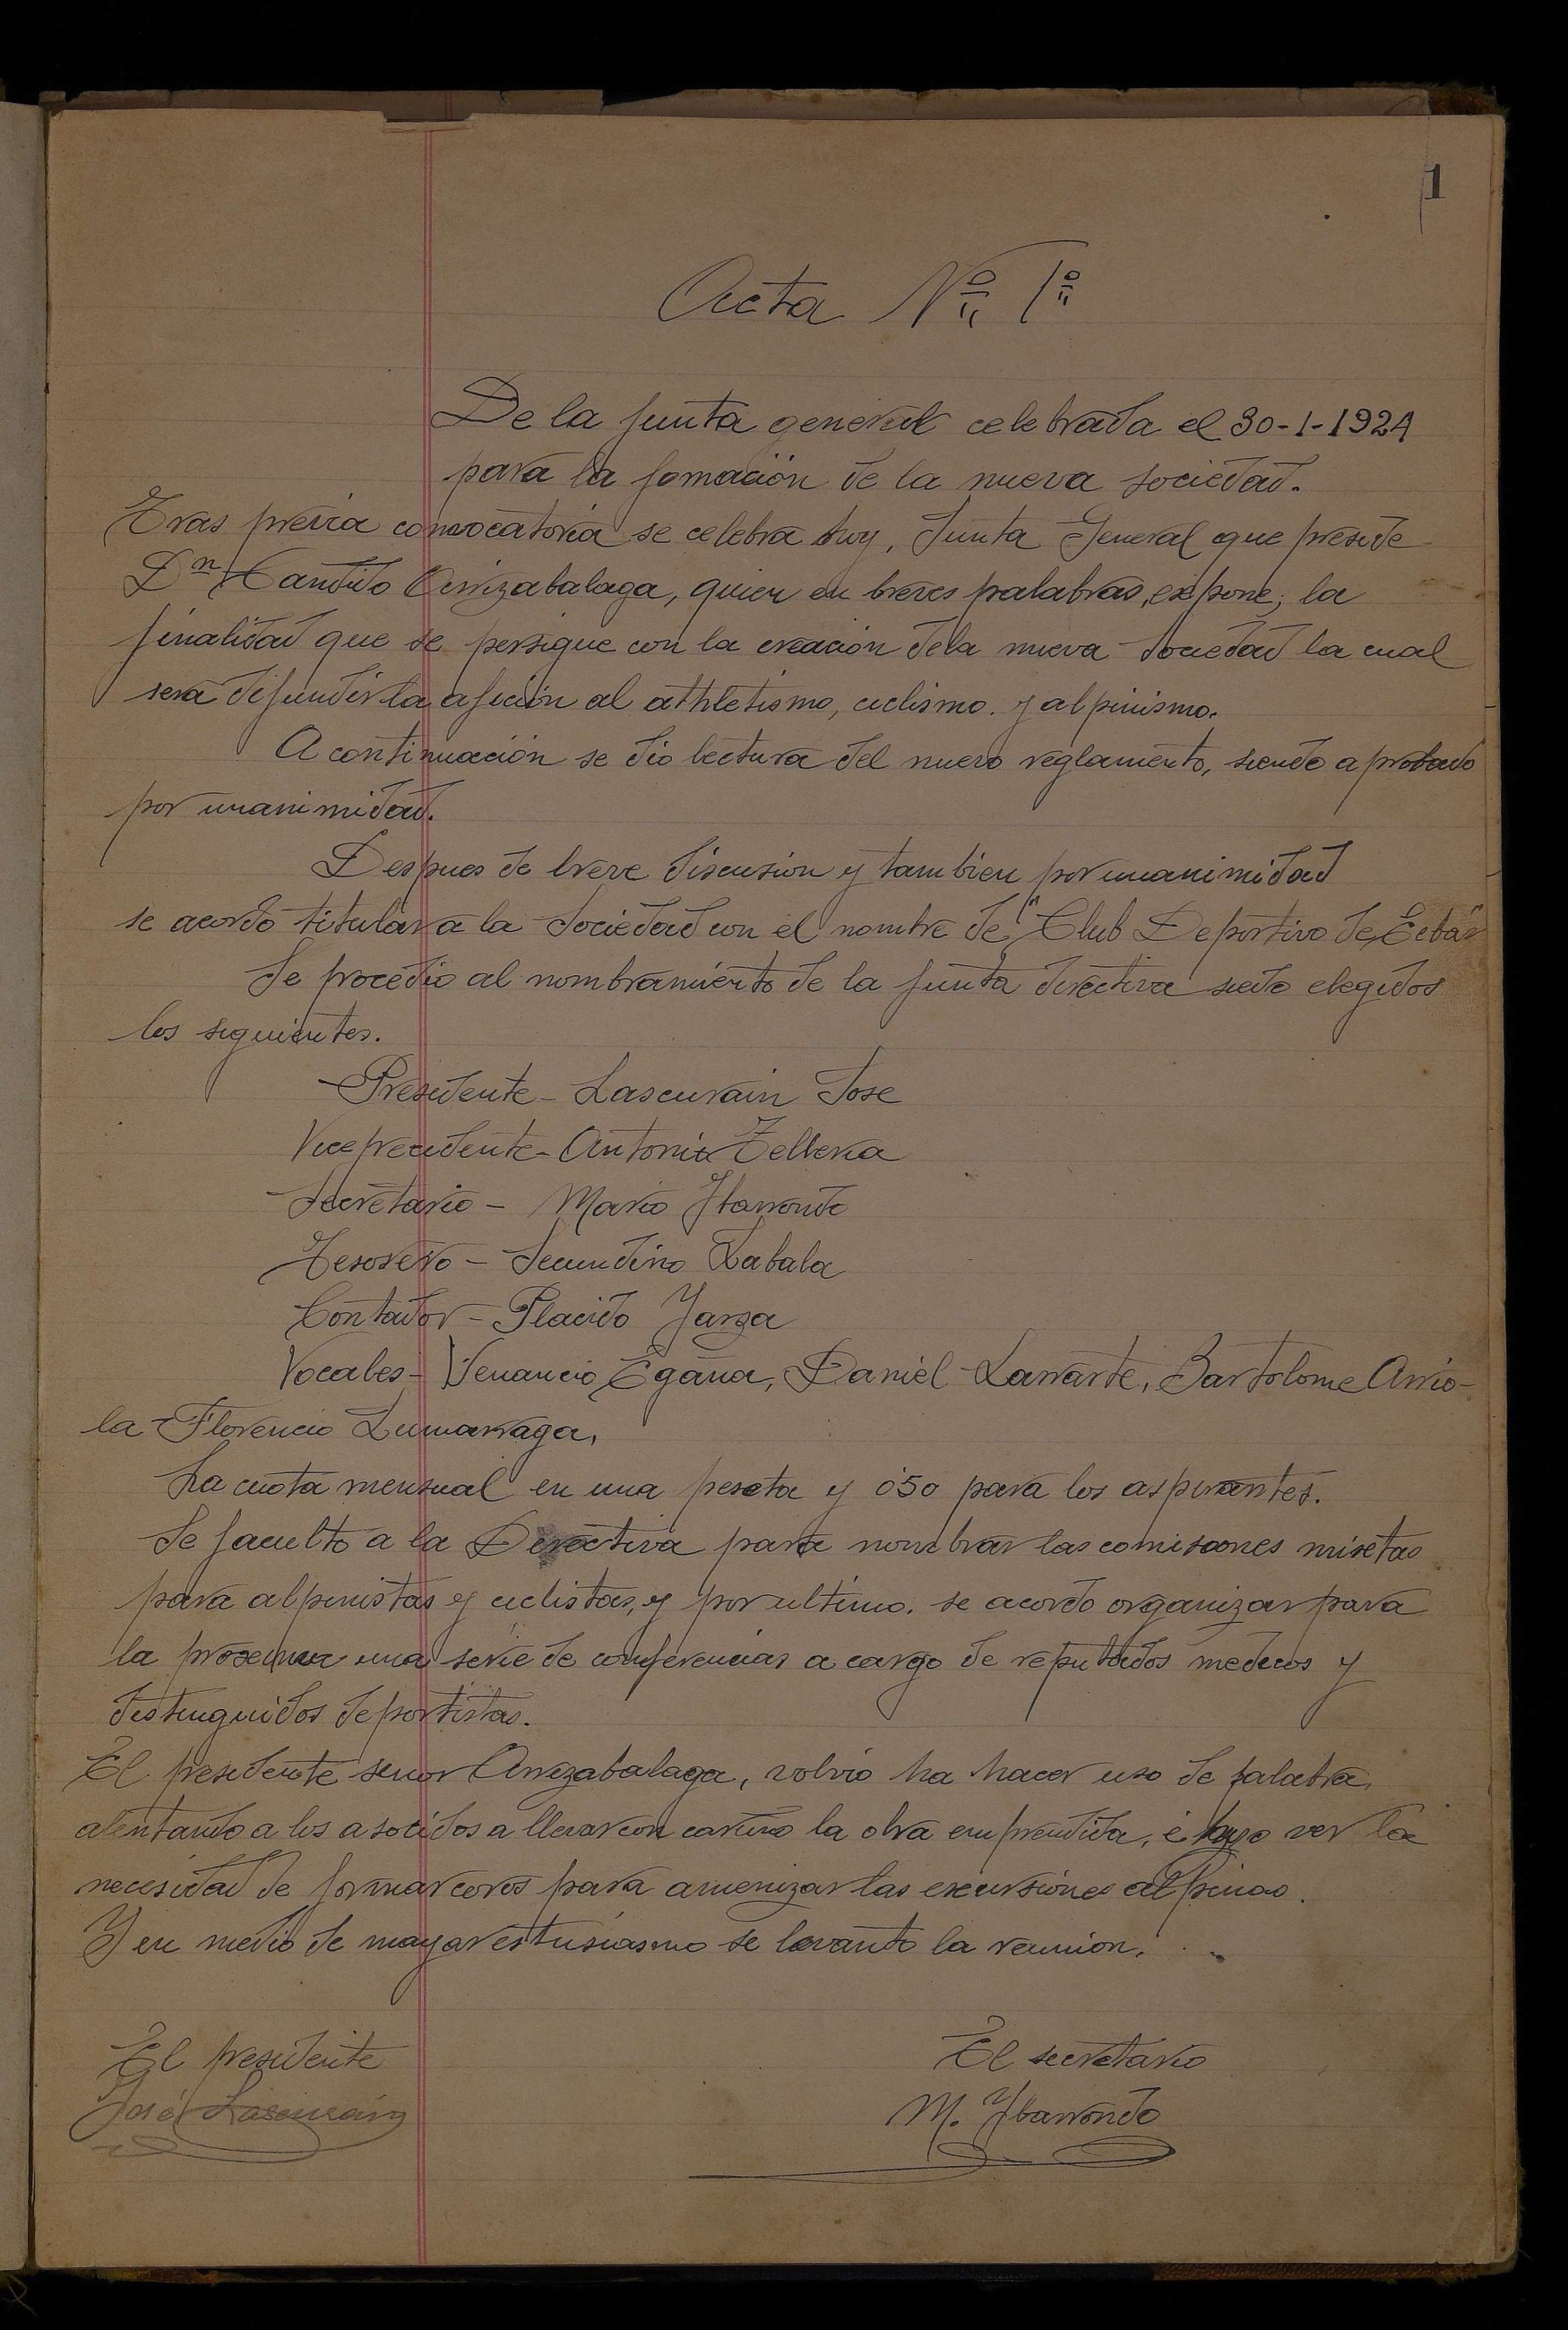 1
Acta Nº 1º
De la junta general celebrada el 30-1-1924
para la fomación de la nueva sociedad.
Tras previa convocatoria se celebra hoy, Junta General que preside
Dn Candido Arrizabalaga, quien en breves palabras, expone; la
finalidad que se persigue con la creación dela nueva Sociedad la cual
sera difundir la afición al athletismo, ciclismo. y alpinismo.
A continuación se dio lectura del nuevo reglamento, siendo aprobado
por unanimidad.
Despues de breve discusion y tambien por unanimidad
se acordo titular a la Sociedad con el nombre de "Club Deportivo de Eibar"
Se procedio al nombramiento de la junta directiva siedo elegidos
los siguientes.
Presidente - Lascurain Jose
Vicepresidente - Antonio Telleria
Secretario - Mario Ybarrondo
Tesorero - Secundino Zabala
Contador - Placido Yarza
Vocales - Venancio Egaña, Daniel Larrarte, Bartolome Arrio-
la Florencio Lumarraga.
La cuota mensual en una peseta y 0'50 para los aspirantes.
Se faculto a la Directiva para nombrar las comisiones mixtas
para alpinistas y ciclistas, y por ultimo. se acordo organizar para
la proxima una serie de conferencias a cargo de reputados medicos y
distinguidos deportistas.
El presidente señor Arrizabalaga, volvio ha hacer uso de palabra,
alentando a los asocidos a llevar con cariño la obra emprendida, é hizo ver la
necesidad de formar coros para amenizar las excursiones alpinas.
Y en medio de mayor estusiasmo se levanto la reunion.
El presidente
José Lascurain
El secretario
M. Ybarrondo